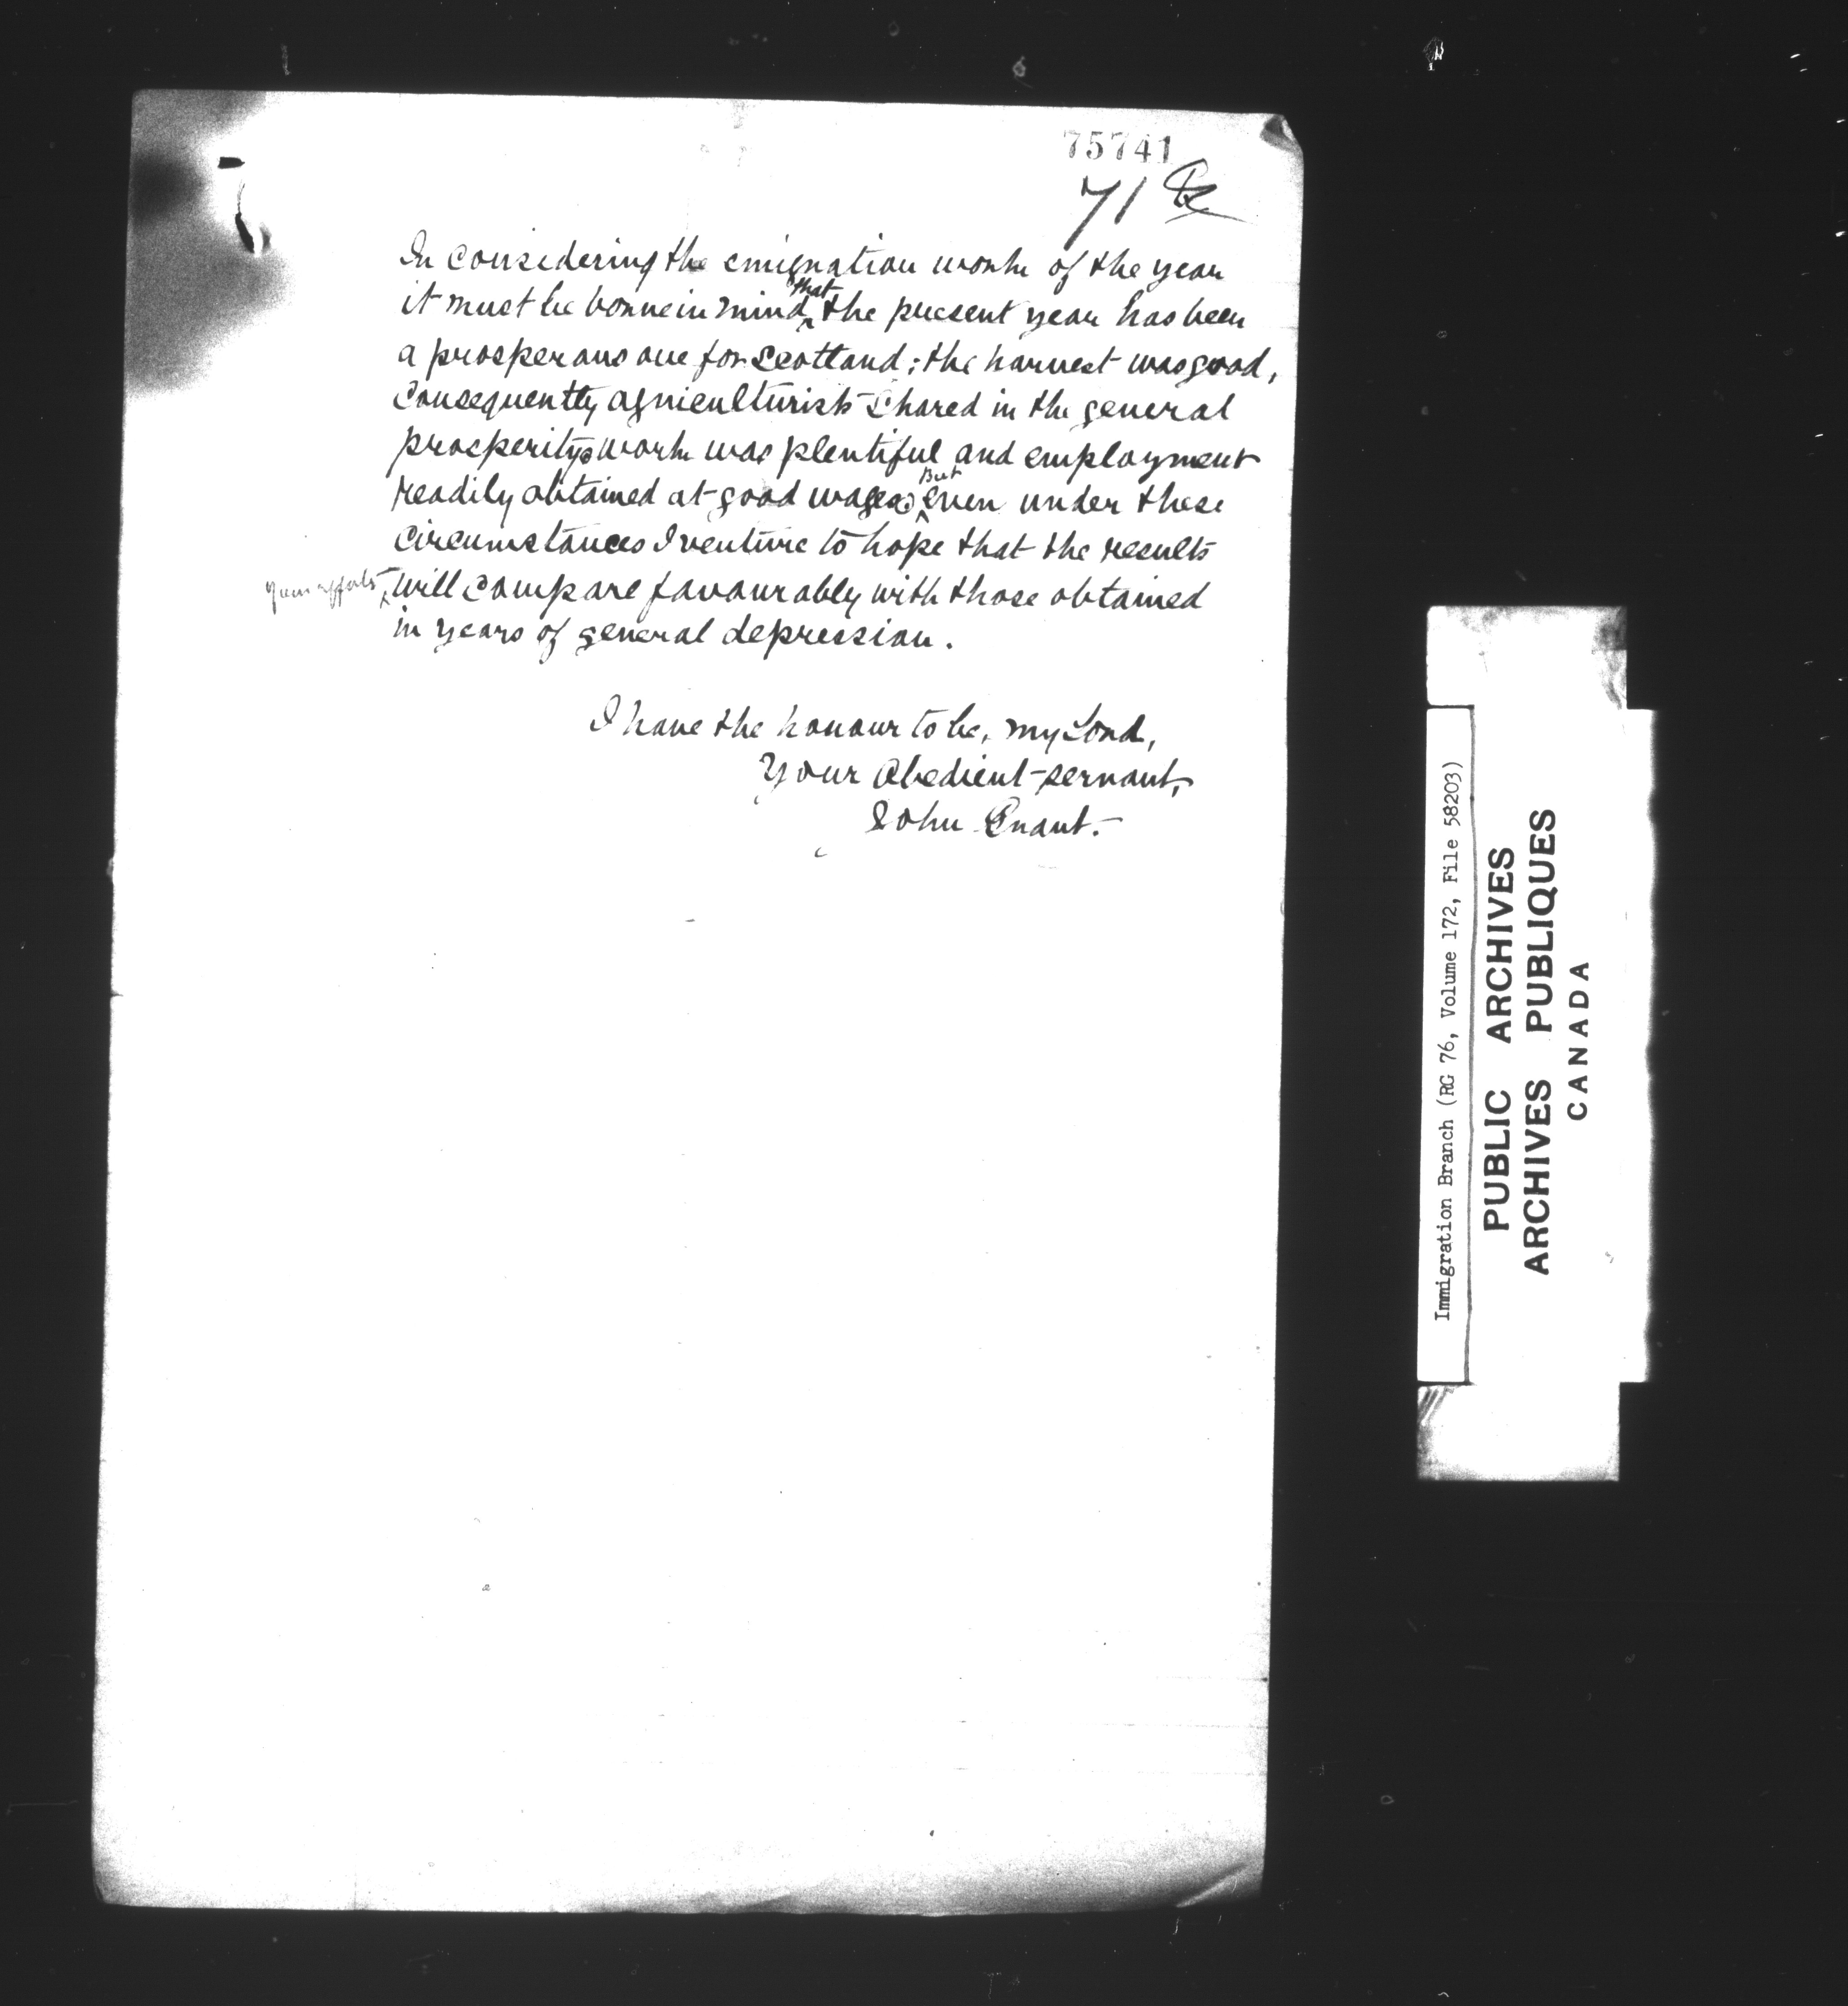 75741
71
In considering the emigration work of the year
it must be borne in mind that the present year has been
a prosperous one for Scotland; the harvest was good,
consequently agriculturists shared in the general
prosperity, work was plentiful and employment
readily obtained at good wages, But even under these
circumstances I venture to hope that the results
will compare favourably with those obtained
in years of general depression.
I have the honour to be, my Lord,
Your Obedient servant,
John Grant.
Immigration Branch (RG 76, Volume 172, File 58203)
PUBLIC ARCHIVES
ARCHIVES PUBLIQUES
CANADA